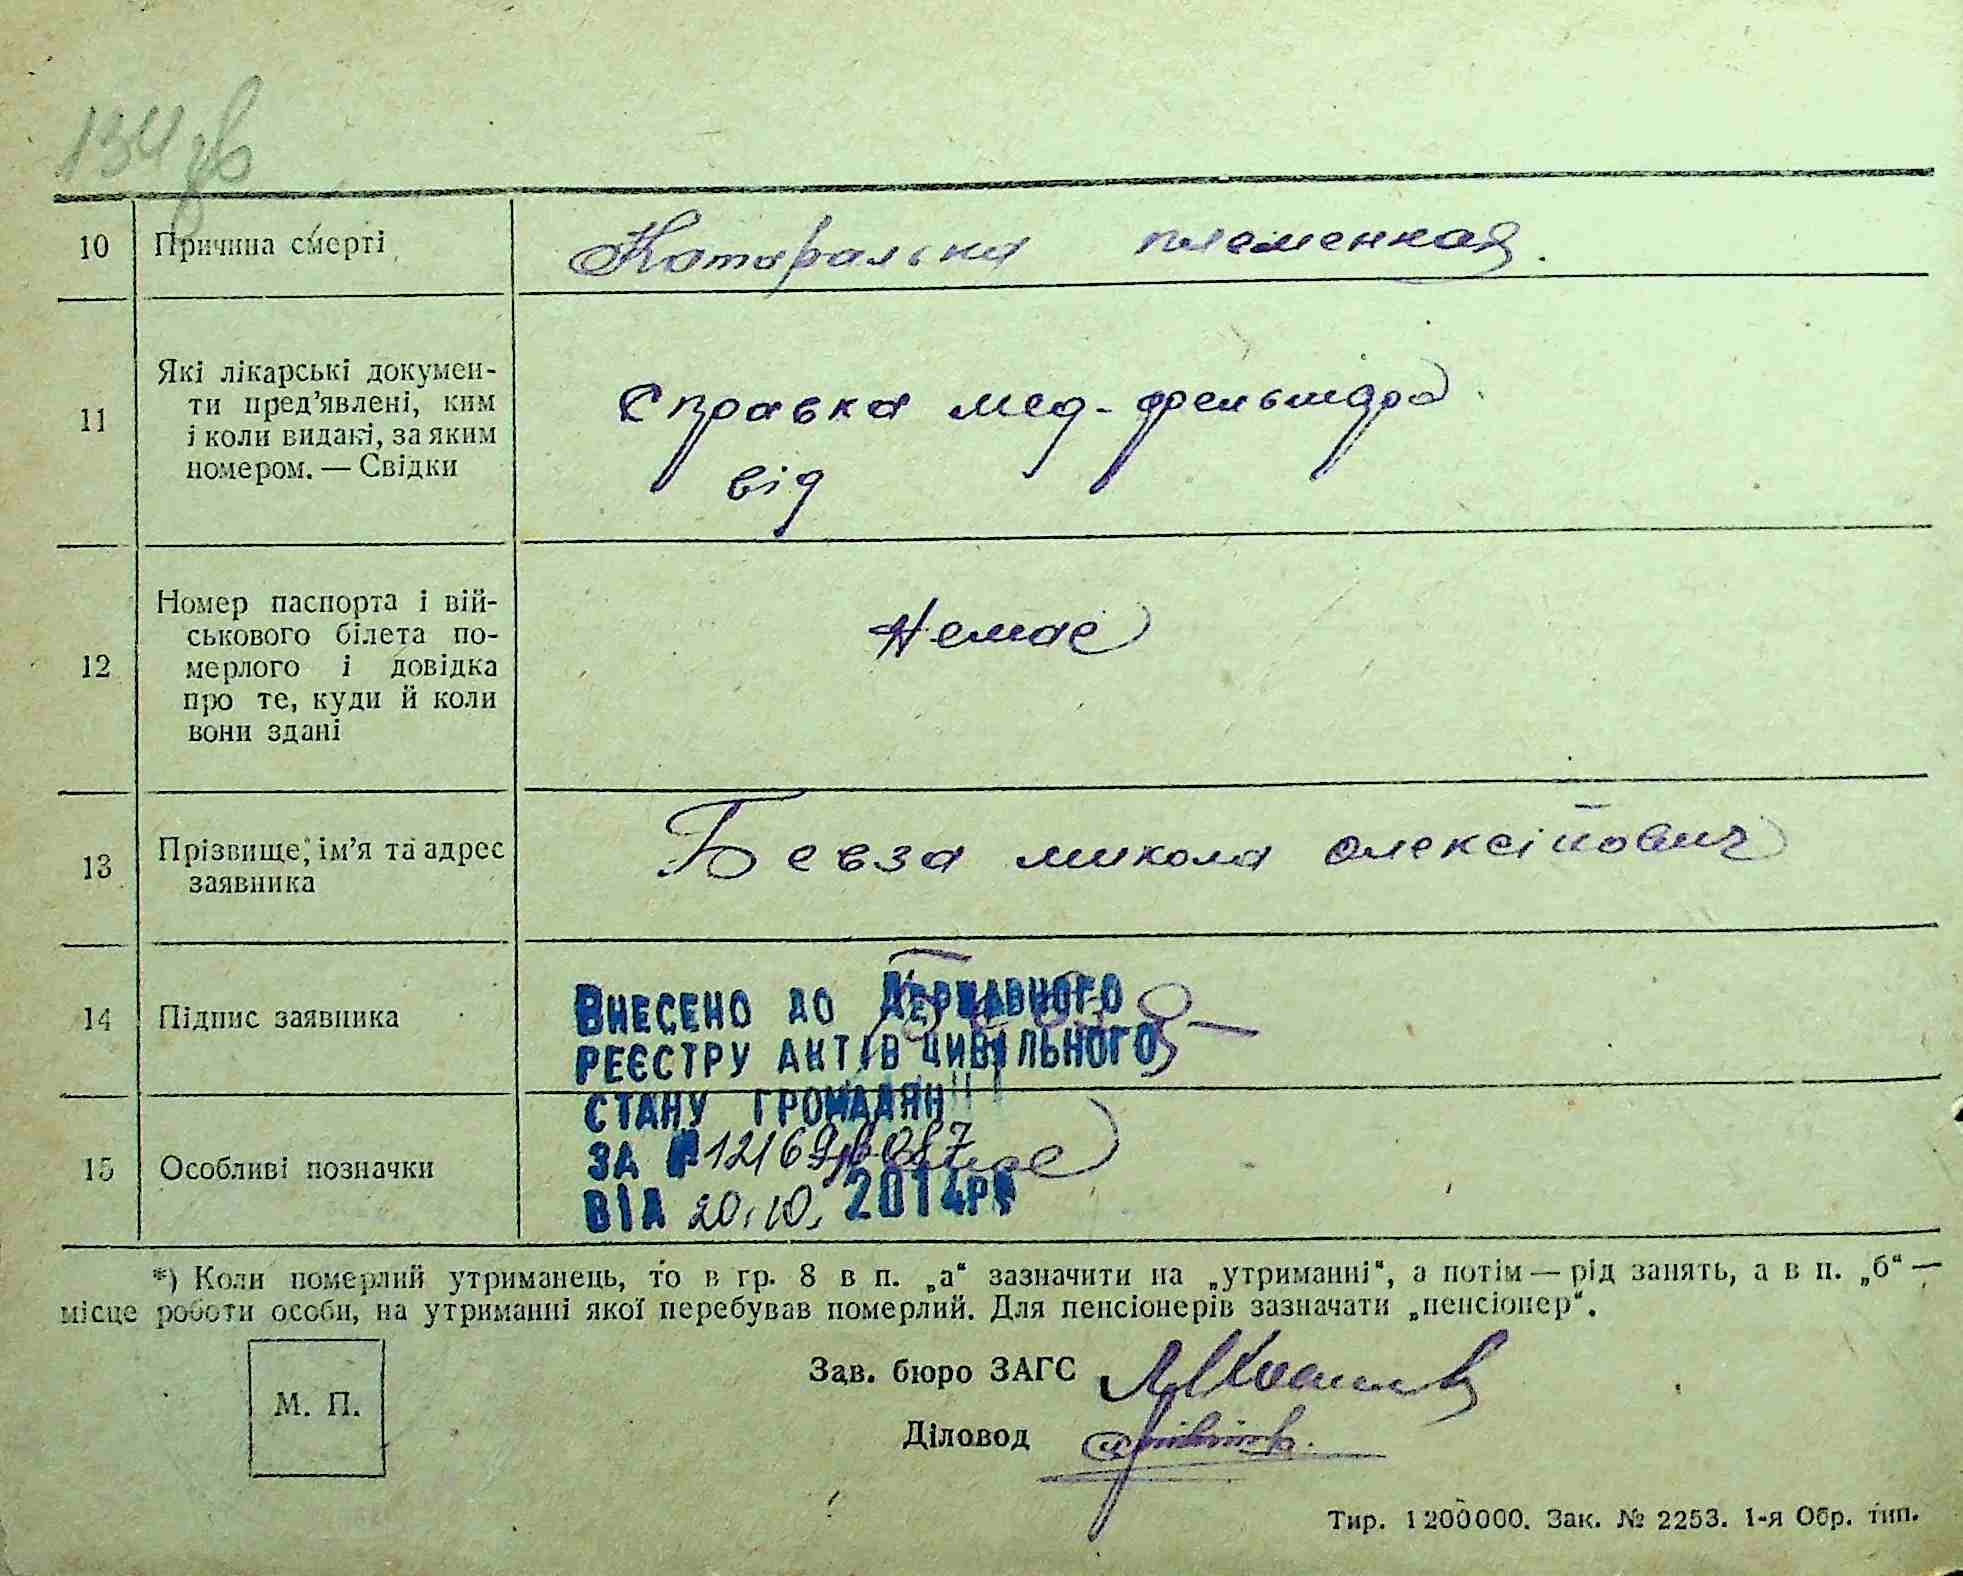 134 зв
10 Причина смерті Катаральна племенная.
11 Які лікарські докумен-
ти пред'явлені, ким
і коли видані, за яким
номером. — Свідки
Справка мед-фельшдра
від
12 Номер паспорта і вій-
ськового білета по-
мерлого і довідка
про те, куди й коли
вони здані
Немає
13 Прізвище, ім'я та адрес
заявника
Бевза микола олексійович
14 Підпис заявника
ВНЕСЕНО ДО ДЕРЖАВНОГО
РЕЄСТРУ АКТІВ ЦИВІЛЬНОГО
СТАНУ ГРОМАДЯН
15 Особливі позначки
ЗА №
ВІД 20.10. 2014Р
*) Коли померлий утриманець, то в гр. 8 в п. „а“ зазначити на „утриманні“, а потім — рід занять, а в п. „б“ —
місце роботи особи, на утриманні якої перебував померлий. Для пенсіонерів зазначати „пенсіонер“.
М. П.
Зав. бюро ЗАГС
Діловод
Тир. 1200000. Зак. № 2253. 1-я Обр. тип.